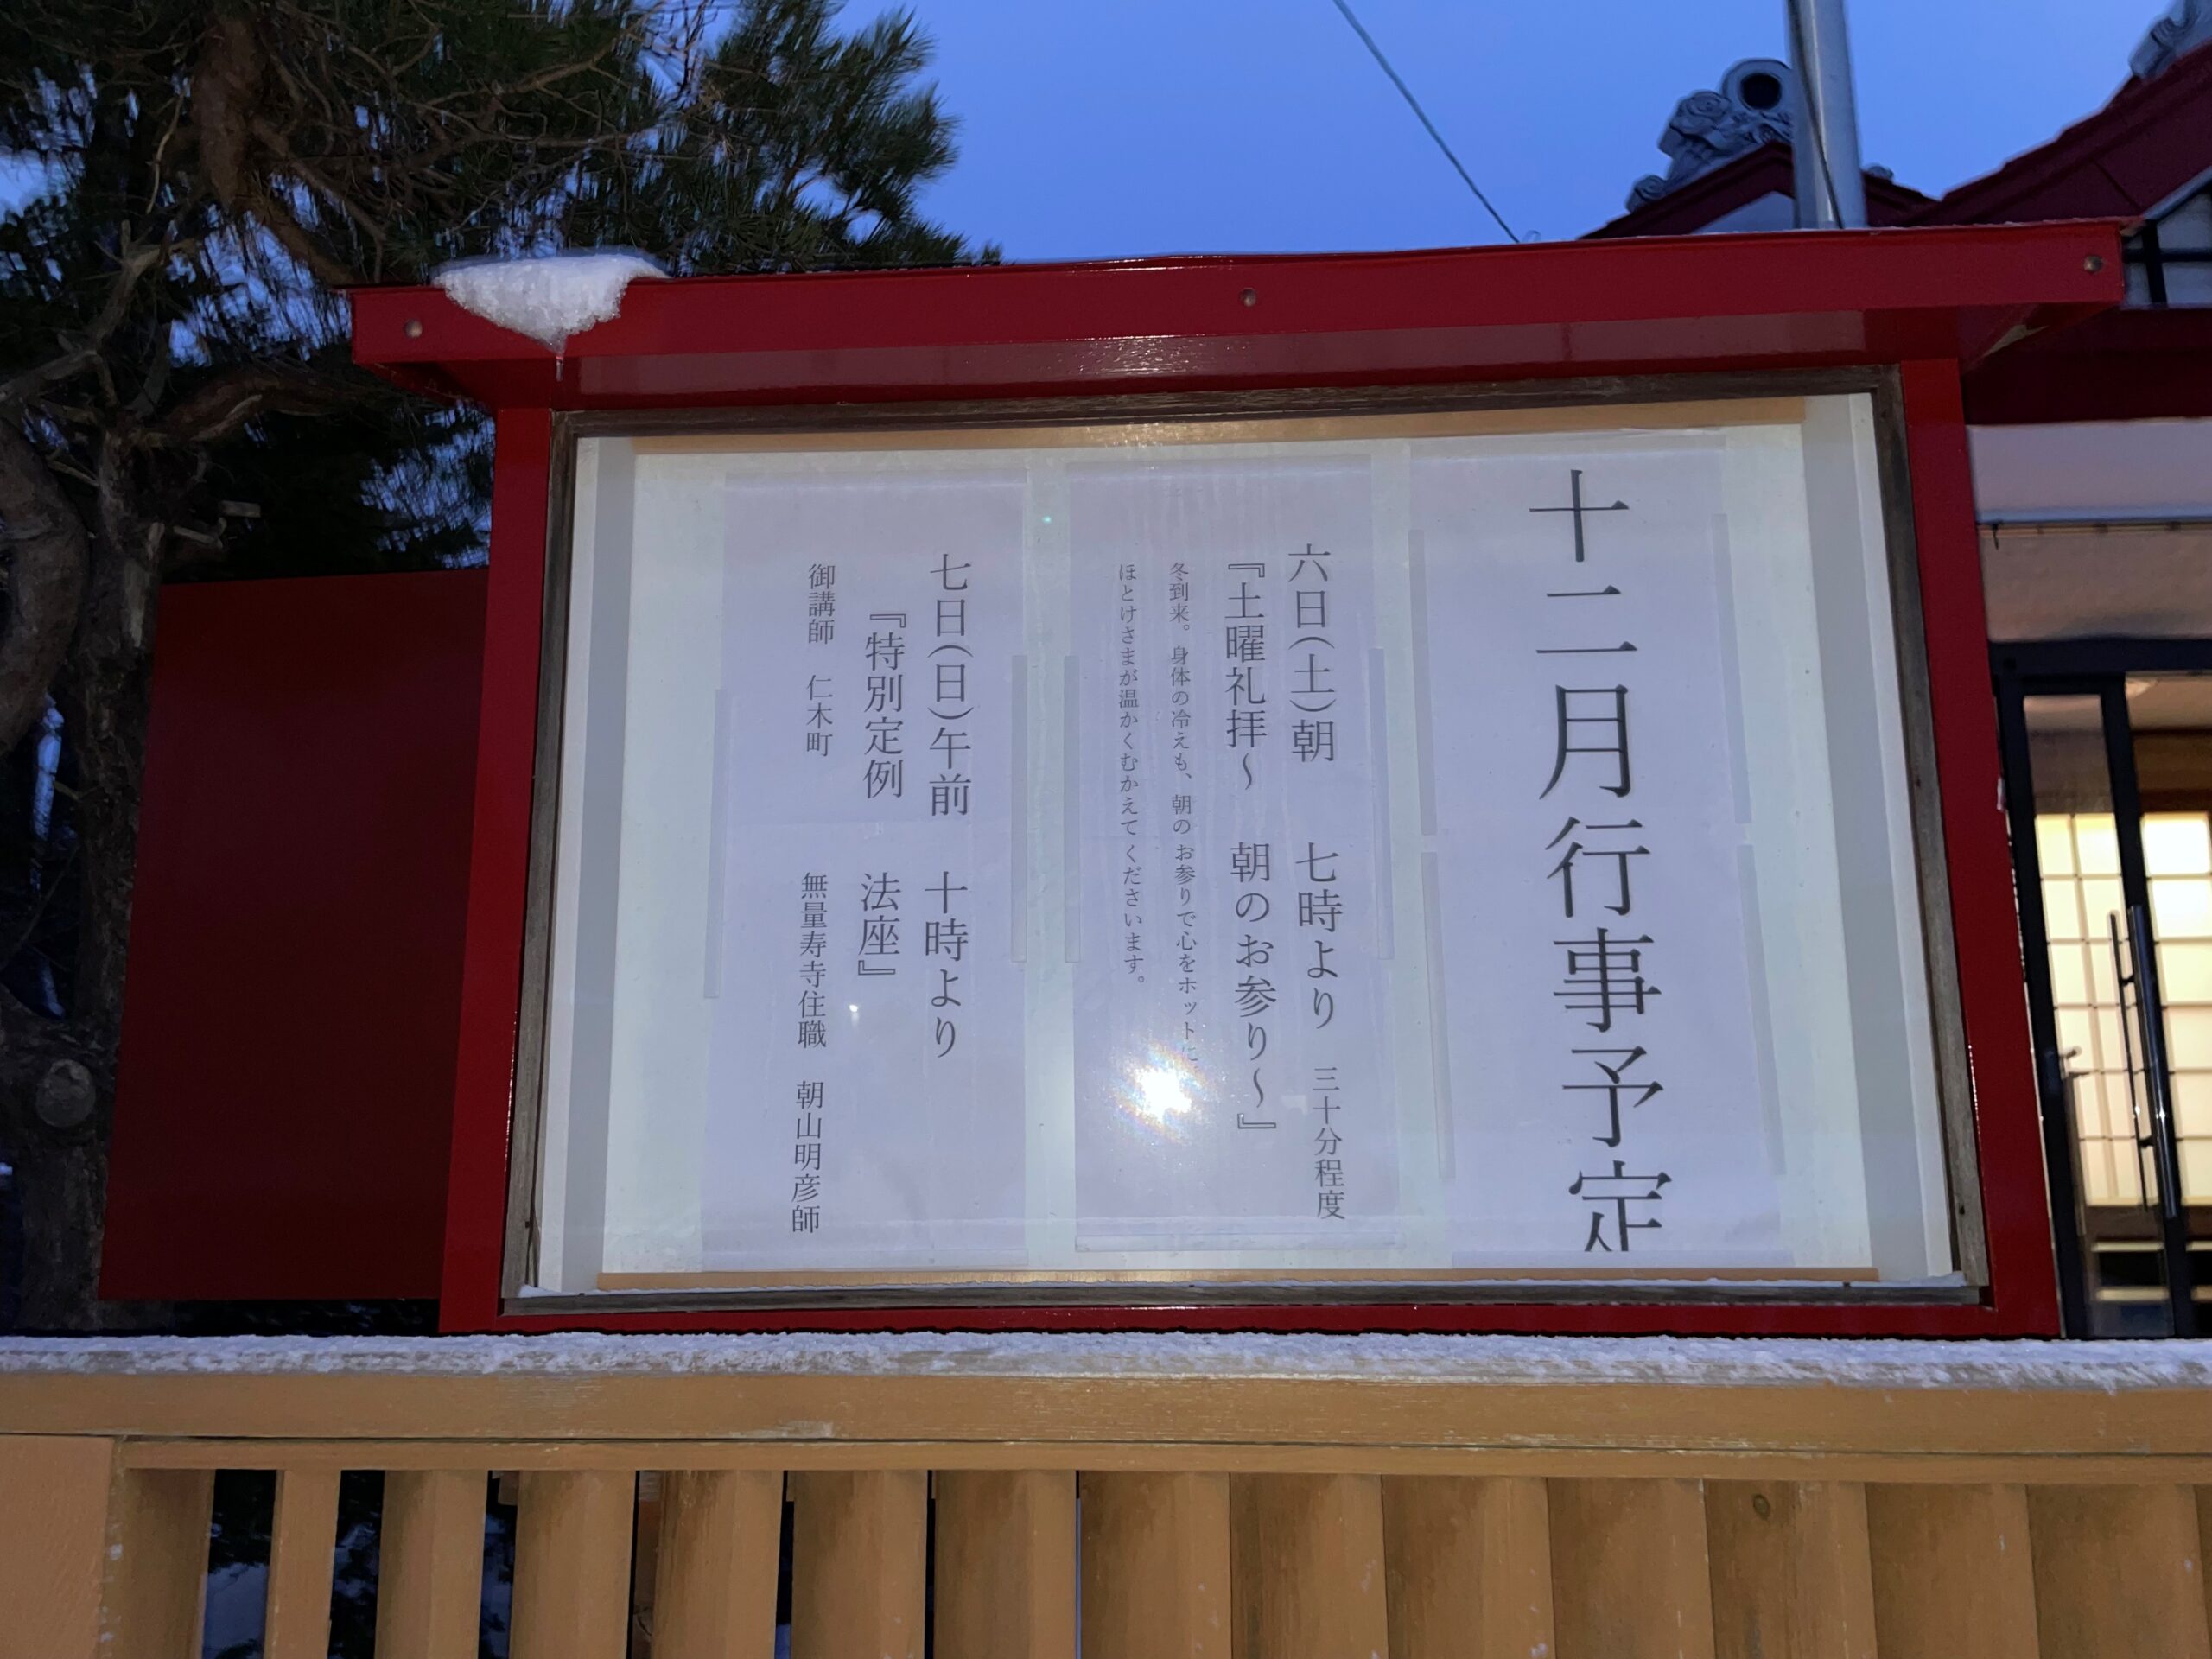 十二月行事予定
六日(土)朝 七時より 三十分程度
『土曜礼拝～ 朝のお参り～』
冬到来。身体の冷えも、朝のお参りで心をホットに
ほとけさまが温かくむかえてくださいます。
七日(日)午前 十時より
『特別定例 法座』
御講師 仁木町 無量寿寺住職 朝山明彦師